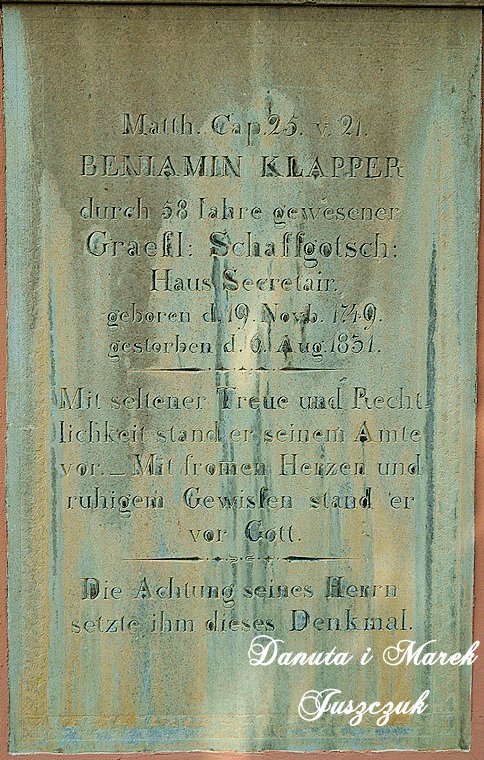 Matth. Cap. 25. v. 21.
BENIAMIN KLAPPER
durch 58 Iahre gewesener
Graefl: Schaffgotsch:
Haus Secretair.
geboren d. 19. Novb. 1749.
gestorben d. 6. Aug. 1831.
Mit seltener Treue und Recht-
lichkeit stand er seinem Amte
vor. – Mit fromen Herzen und
ruhigem Gewissen stand er
vor Gott.
Die Achtung seines Herrn
setzte ihm dieses Denkmal.
Danuta i Marek
Juszczuk